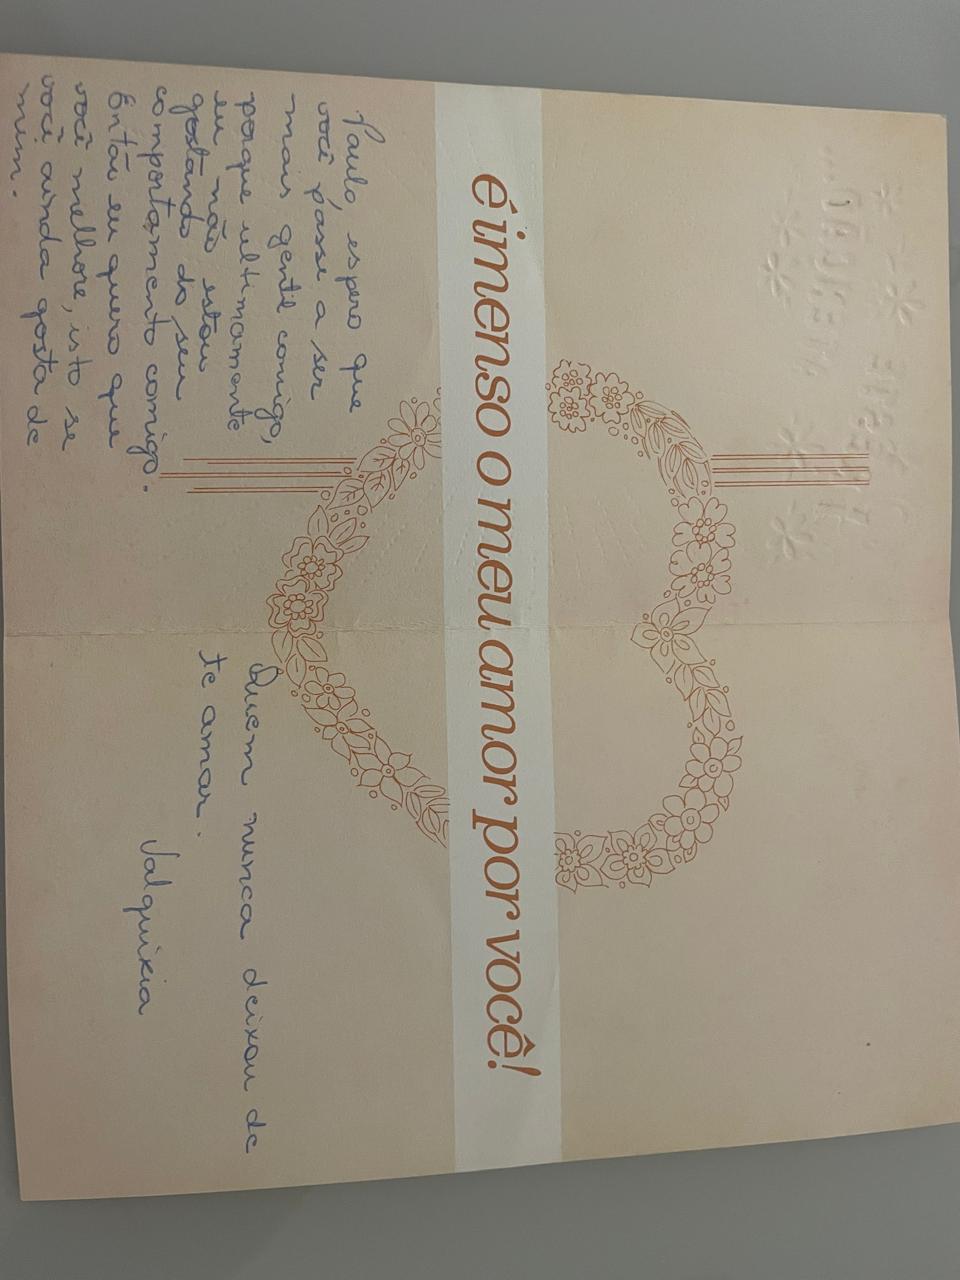 é imenso o meu amor por você!
Paulo, espero que
você passe a ser
mais gente comigo,
porque ultimamente
eu não estou
gostando do seu
comportamento comigo.
Então eu quero que
você melhore, isto se
você ainda gosta de
mim.
Quem nunca deixou de
te amar.
Valquíria